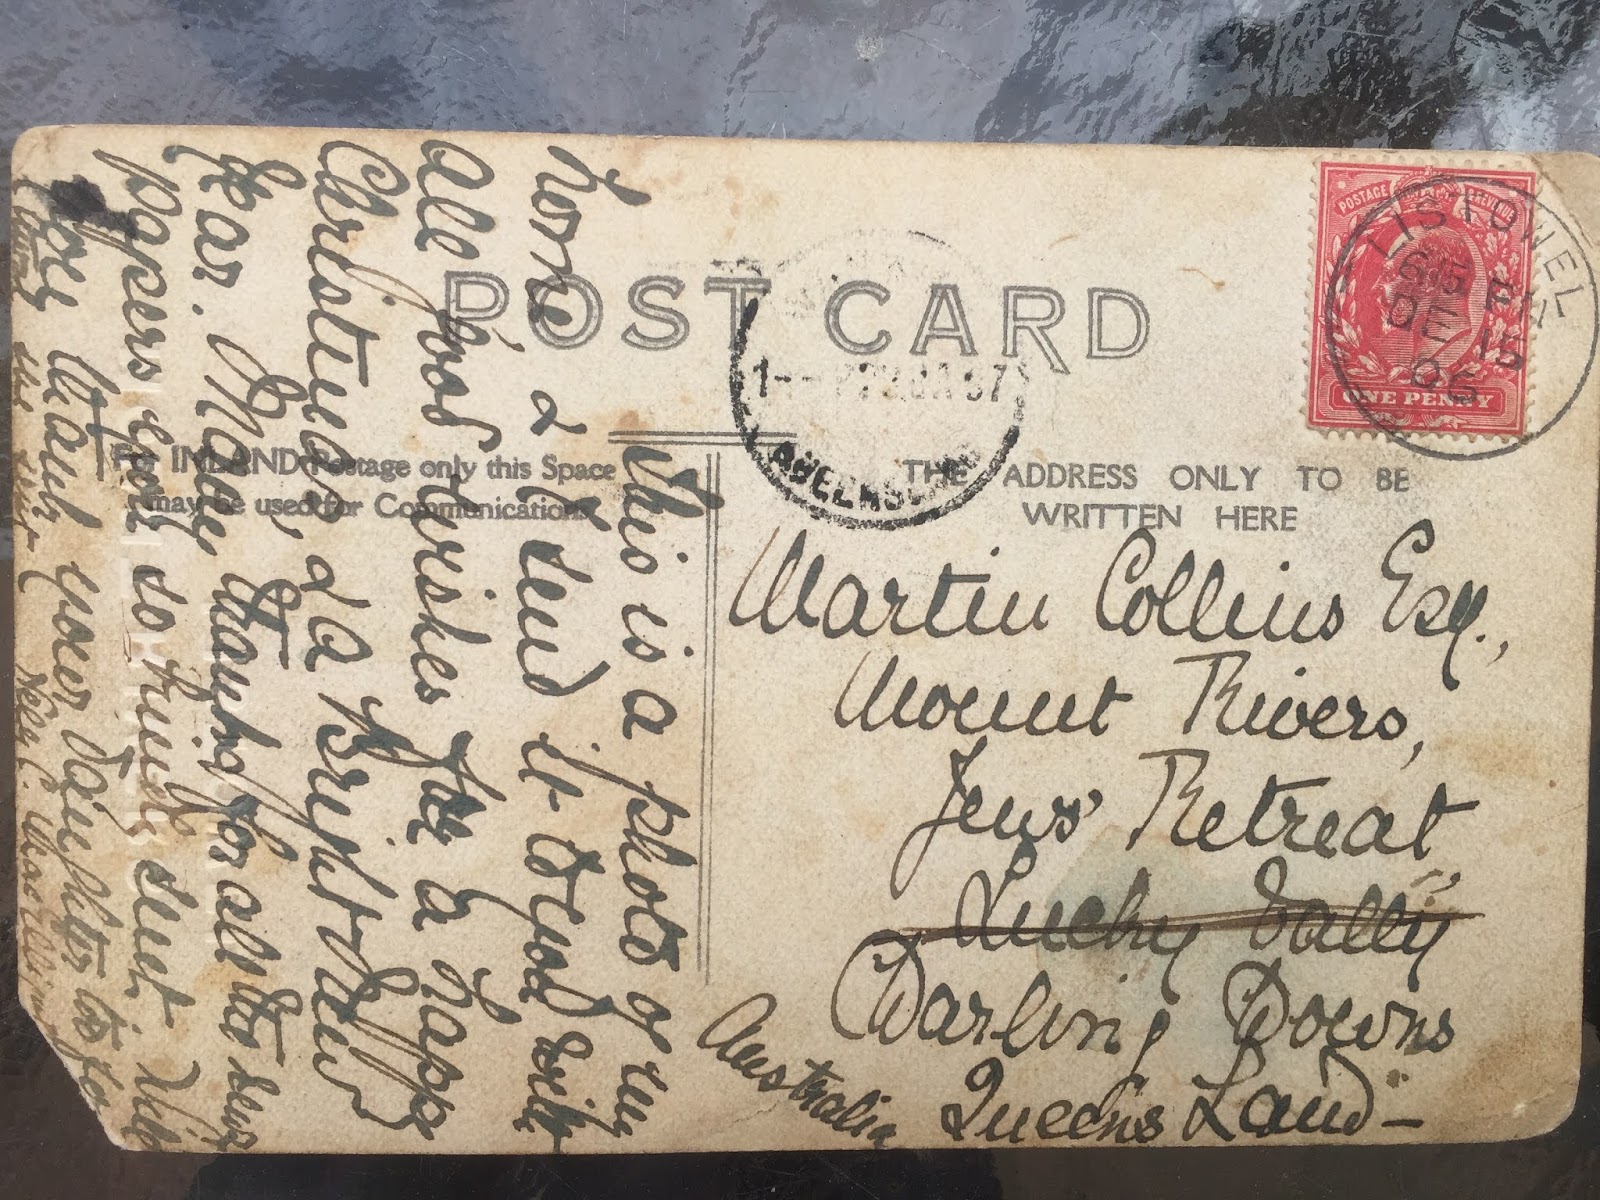 POSTAGE REVENUE
ONE PENNY
LISTOWEL
6.15 PM
DE 15
06
POST CARD
For INLAND Postage only this Space
may be used for Communications.
THE ADDRESS ONLY TO BE
WRITTEN HERE
Martin Collins Esq.,
Mount Rivers,
Jews' Retreat,
Lucky Vally
Darling Downs
Queen's Land —
Australia
This is a photo of my
home & I send it to you with
all good wishes for a happy
Christmas, & a bright New
Year. Many thanks for all the
papers you so kindly sent.
your daughter
the
Nelly C.